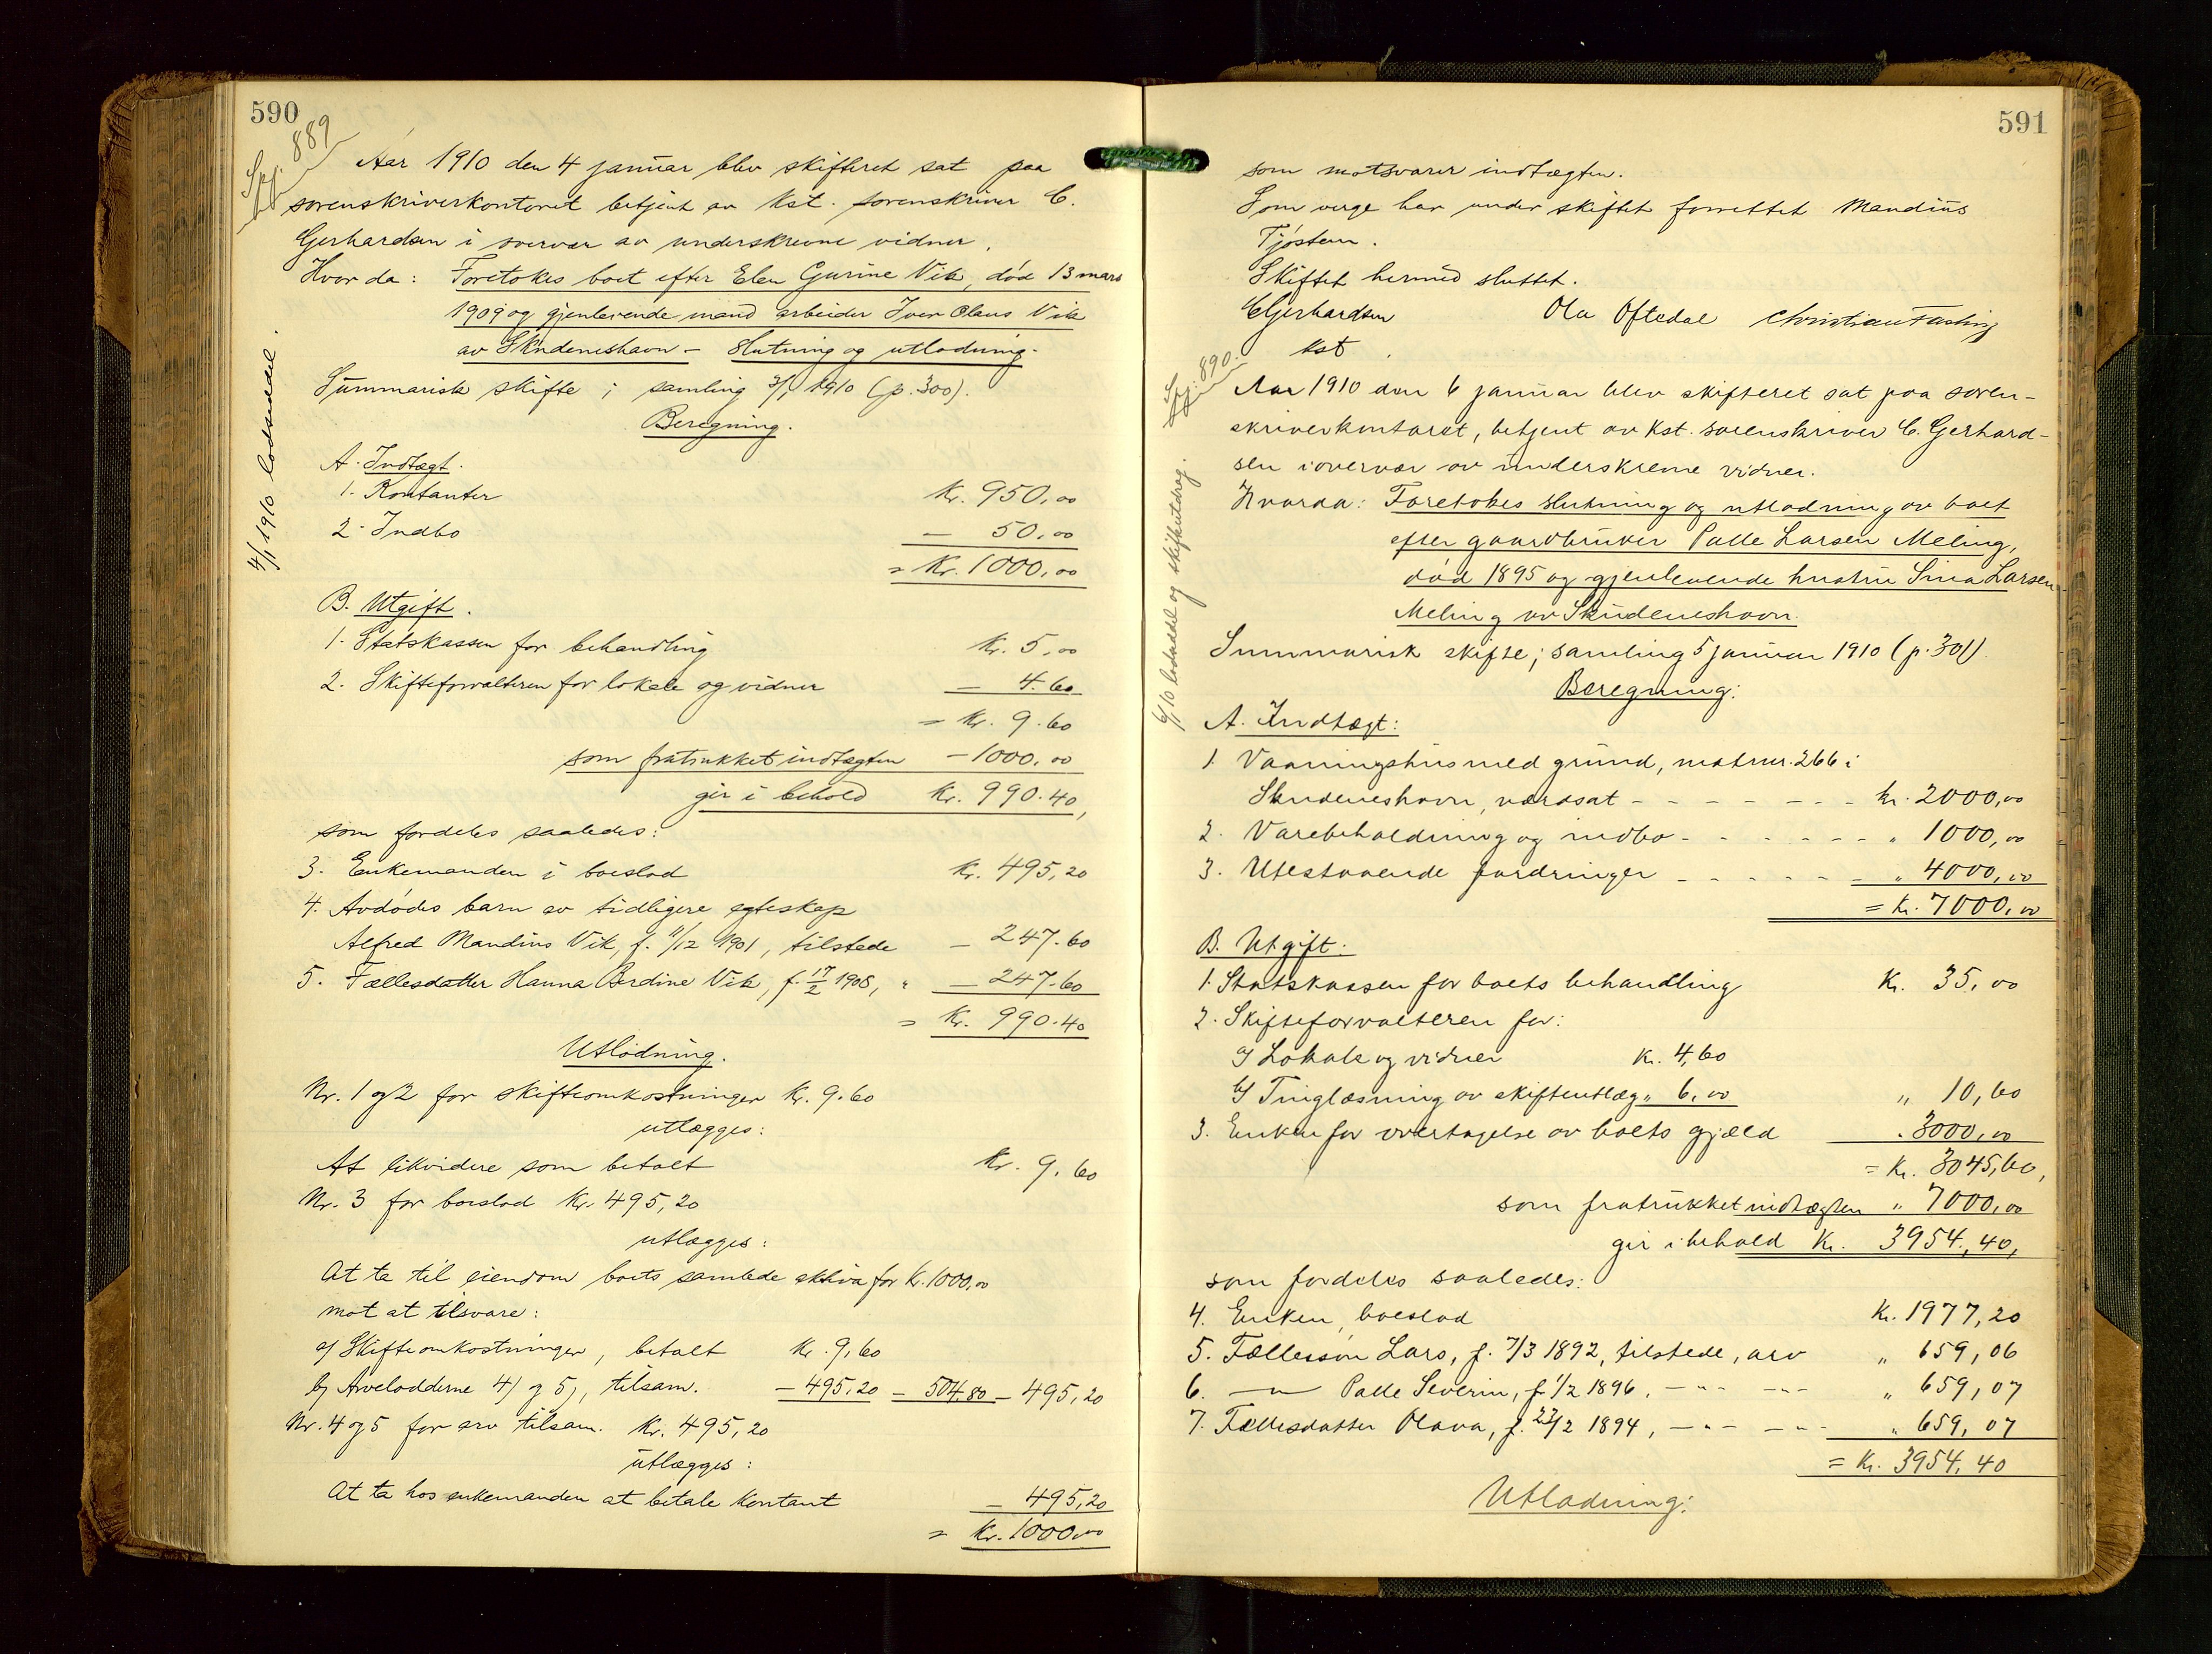 590
Spj. 889
Aar 1910 den 4 januar blev skifteret sat paa
sorenskriverkontoret betjent av Kst. sorenskriver C.
Gerhardsen i overvær av underskrevne vidner.
Hvor da: Foretokes boet efter Elen Gurine Vik, død 13 mars
1909 og gjenlevende mand arbeider Iver Olaus Vik
av Skudeneshavn – slutning og utlodning.
Summarisk skifte; samling 3/1 1910 (p. 300).
4/1 1910 lodseddel.
Beregning.
A. Indtægt.
1. Kontanter Kr. 950,00
2. Indbo — 50,00
= Kr. 1000,00
B. Utgift.
1. Statskassen for behandling Kr. 5,00
2. Skifteforvalteren for lokale og vidner — 4.60
= Kr. 9.60
som fratrukket indtægten — 1000,00
gir i behold Kr. 990.40,
som fordeles saaledes:
3. Enkemanden i boeslod Kr. 495,20
4. Avdødes barn av tidligere egteskap
Alfred Mandius Vik, f. 11/12 1901, tilstede — 247.60
5. Fællesdatter Hanna Berdine Vik, f. 17/2 1908, " — 247.60
= Kr. 990.40
Utlodning.
Nr. 1 og 2 for skifteomkostninger Kr. 9.60
utlægges:
At likvidere som betalt Kr. 9,60
Nr. 3 for boeslod Kr. 495,20
utlægges:
At ta til eiendom boets samlede aktiva for Kr. 1000,00
mot at tilsvare:
a) Skifteomkostninger, betalt Kr. 9,60
b) Arvelodderne 4) og 5), tilsam. — 495,20 — 504.80 — 495,20
Nr. 4 og 5 for arv tilsam. Kr. 495,20
utlægges:
At ta hos enkemanden at betale kontant — 495,20
= Kr. 1000,00
591
som motsvarer indtægten.
Som verge har under skiftet forrettet Mandius
Tjøstem.
Skiftet hermed sluttet.
CGerhardsen Ola Oftedal Christian Fasting
kst.
Spj. 890.
Aar 1910 den 6 januar blev skifteret sat paa soren-
skriverkontoret, betjent av Kst. sorenskriver C. Gerhard-
sen i overvær av underskrevne vidner.
Hvorda: Foretokes slutning og utlodning av boet
efter gaardbruker Palle Larsen Meling,
død 1895 og gjenlevende hustru Sina Larsen
Meling av Skudeneshavn.
Summarisk skifte; samling 5 januar 1910 (p. 301).
6/1 10 lodseddel og skifteutdrag.
Beregning:
A. Indtægt:
1. Vaaningshus med grund, matrnr. 266 i
Skudeneshavn, værdsat - - - - - - - kr. 2000,00
2. Varebeholdning og indbo - - - - - - - " 1000,00
3. Utestaaende fordringer - - - - - - " 4000,00
= Kr. 7000,00
B. Utgift:
1. Statskassen for boets behandling Kr. 35,00
2. Skifteforvalteren for:
a) Lokale og vidner Kr. 4,60
b) Tinglæsning av skifteutlæg " 6,00 " 10,60
3. Enken for overtagelse av boets gjæld " 3000,00
= Kr. 3045,60,
som fratrukket indtægten " 7000,00
gir i behold Kr. 3954,40,
som fordeles saaledes:
4. Enken, boeslod Kr. 1977,20
5. Fællessøn Lars, f. 7/3 1892, tilstede, arv " 659,06
6. —"— Palle Severin, f. 1/2 1896, —"— —"— " 659,07
7. Fællesdatter Olava, f. 22/2 1894, —"— —"— " 659,07
= Kr. 3954,40
Utlodning: